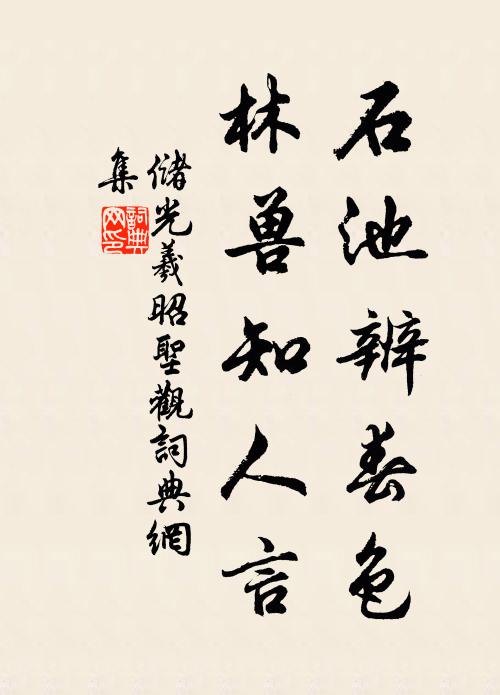 石池辨春色
林兽知人言
儲光羲昭聖觀詞典網
集
詞典網印